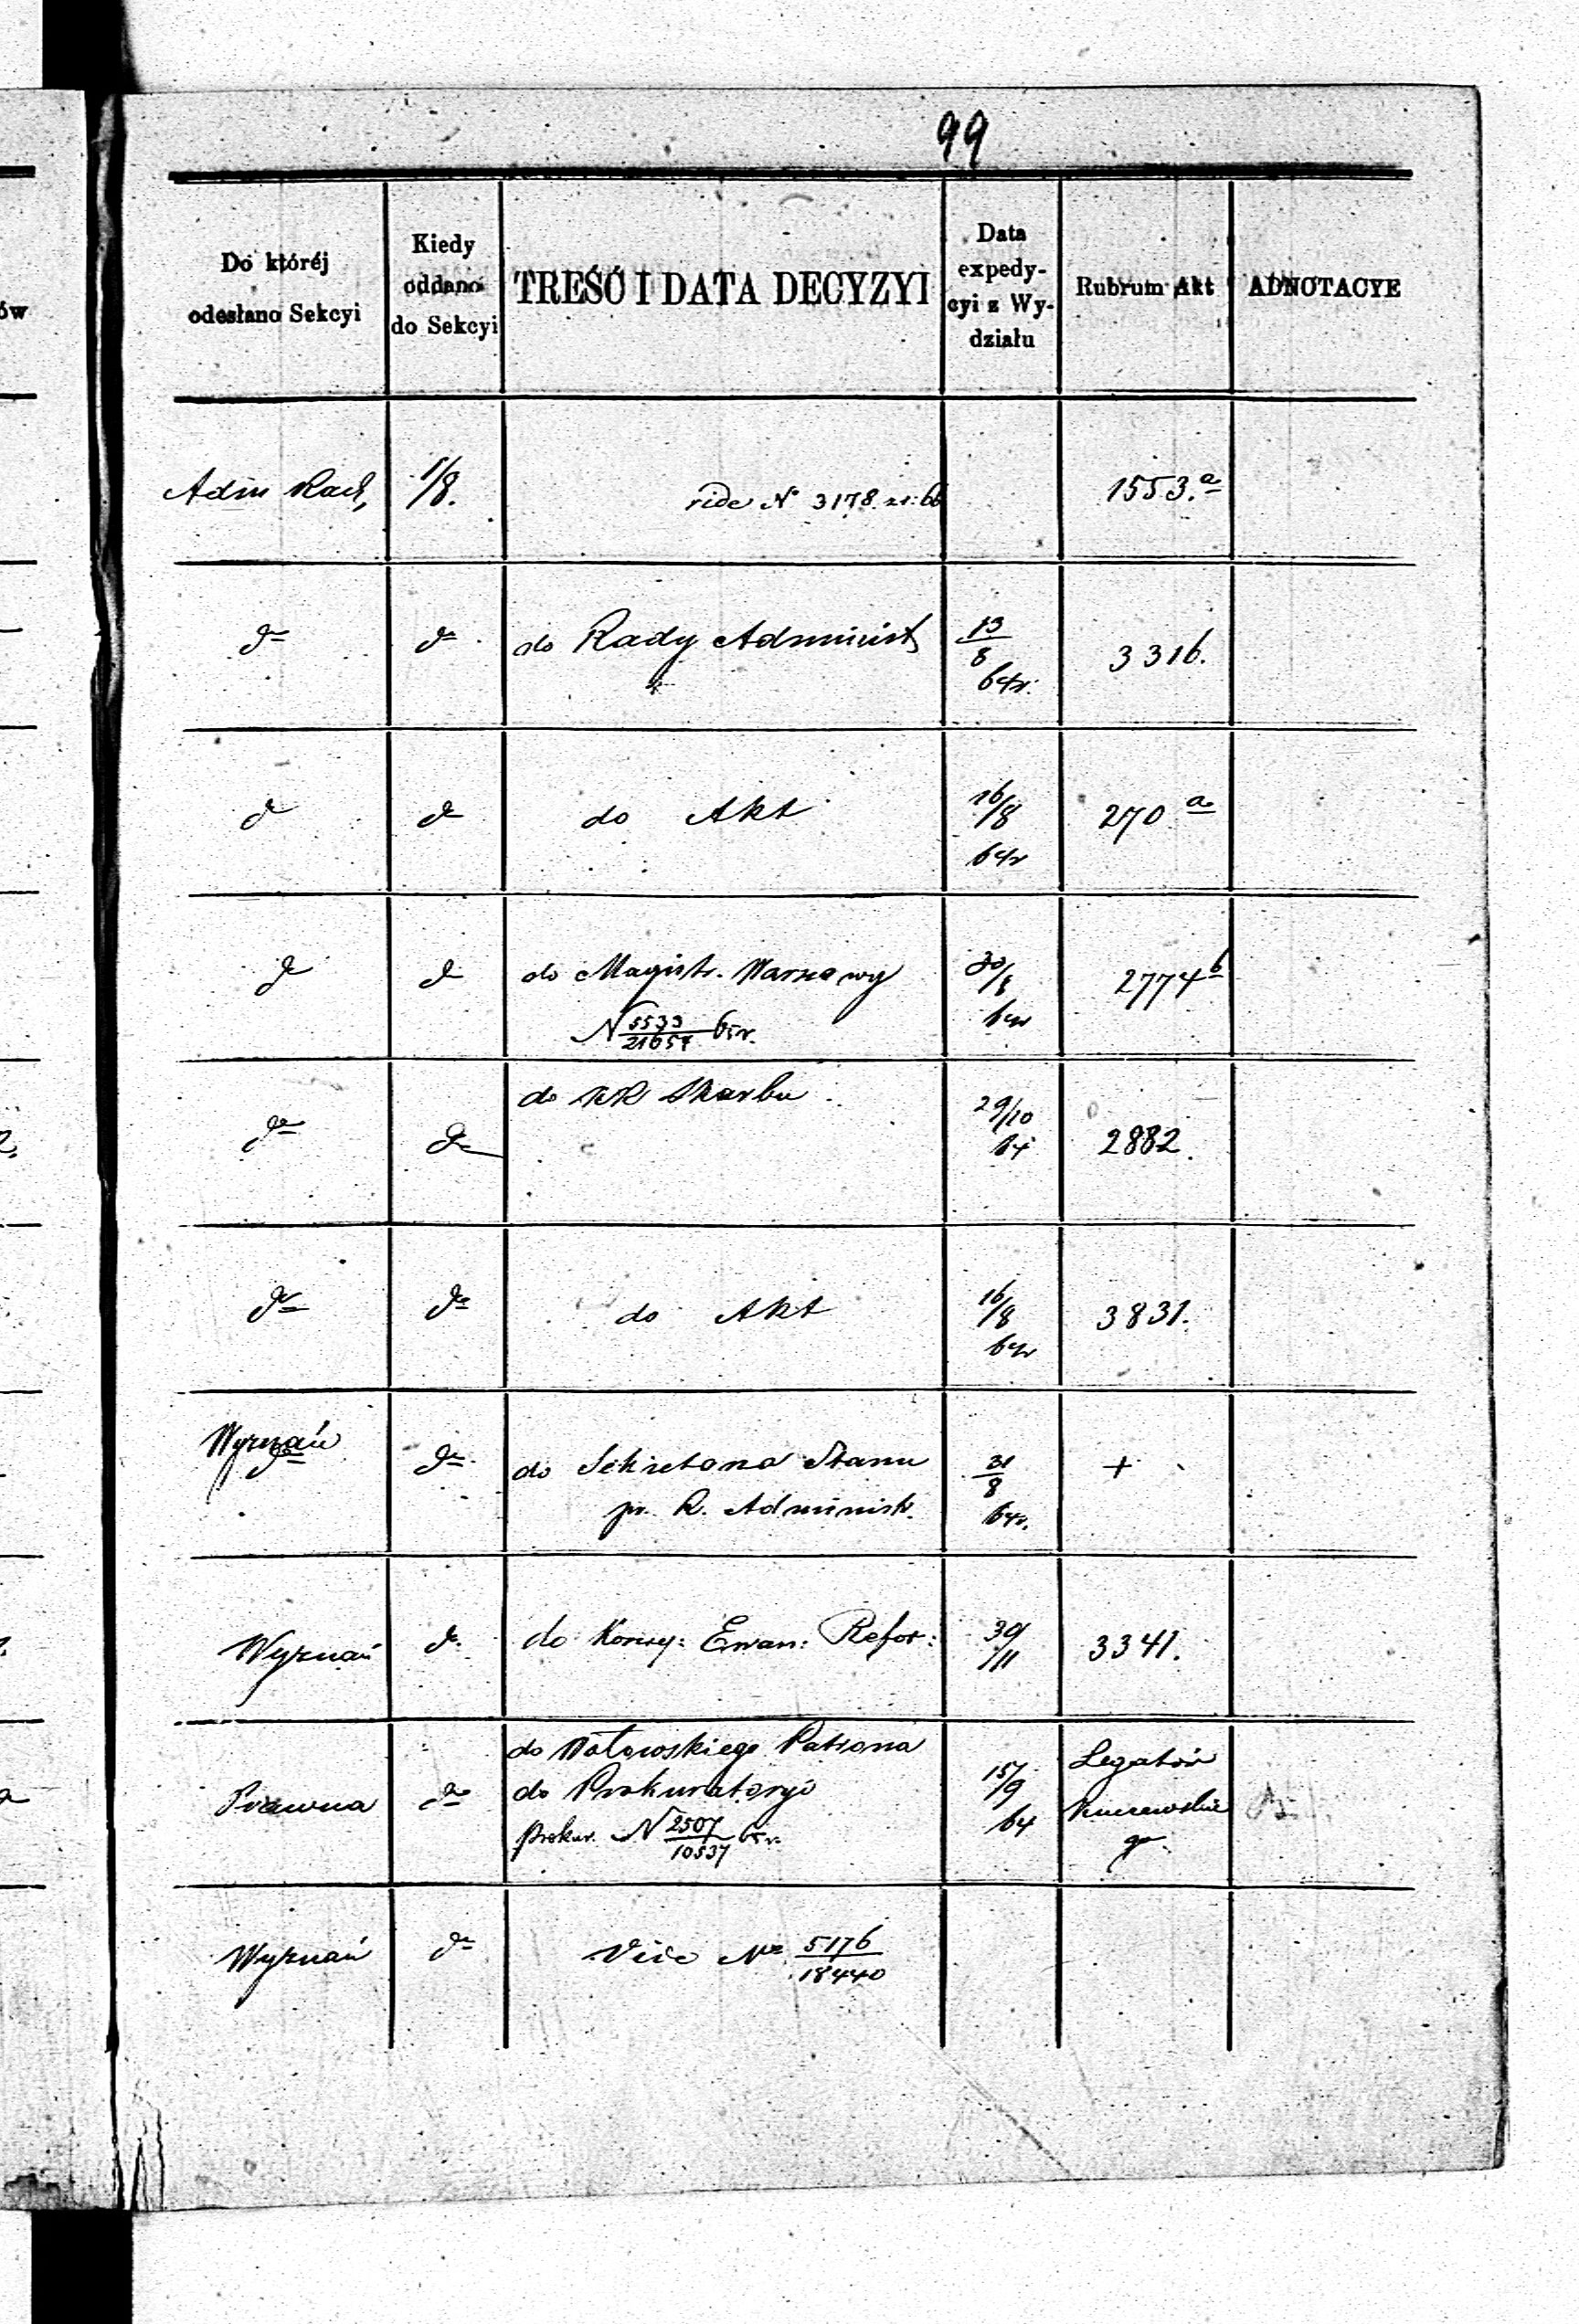 99
Do któréj odesłano Sekcyi | Kiedy oddano do Sekcyi | TREŚĆ I DATA DECYZYI | Data expedycyi z Wydziału | Rubrum Akt | ADNOTACYE
Adm Rach, | 1/8. | vide N° 3178 | | 1553.a
do | do | do Rady Administ | 13/8 64r. | 3316.
do | do | do Akt | 16/8 64r | 270 a
do | do | do Magistr. Warszawy | 30/8 64r | 2774 b
N 5533/21657 65r.
do | do | do KR Skarbu | 29/10 64 | 2882.
do | do | do Akt | 16/8 64r | 3831.
Wyznań do | do | do Sekretarza Stanu | 31/8 64r. | +
pr. R. Administr.
Wyznań | do | do Konsy: Ewan: Refor: | 30/11 | 3341.
Prawna | do | do Wołowskiego Patrona | 15/9 64 | Legatów
do Prokuratoryi
Prokur. N 2507/10537 65 r.
Wyznań | do | Vide No 5176/18440